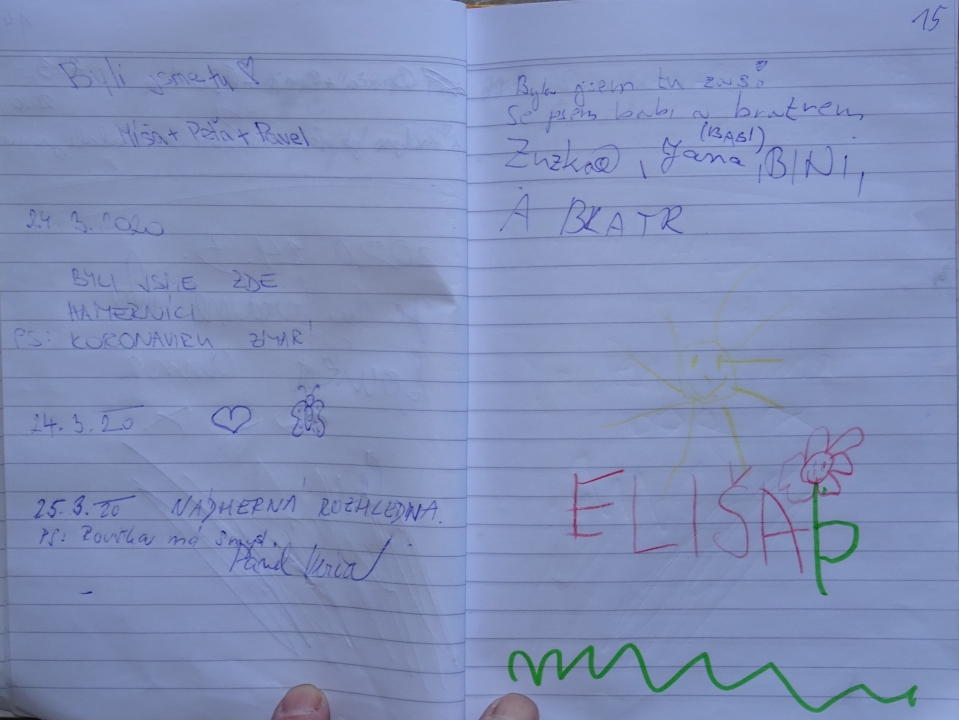 Byli jsme tu ♡
Míša + Péťa + Pavel
24. 3. 2020
BYLI JSME ZDE
HAMERNÍCI
PS: KORONAVIRU ZMAR
24. 3. 20
25. 3. 20 NÁDHERNÁ ROZHLEDNA.
PS: Rouška má smysl.
15
Byla jsem tu zas!
Se psem babi a bratrem
Zuzka, Jana (BABI), BINI,
A BRATR
ELIŠA